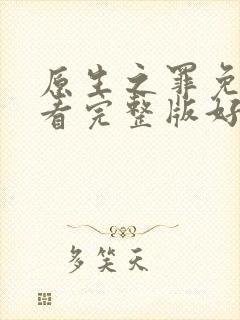 原生之罪免
看完整版好
多笑天